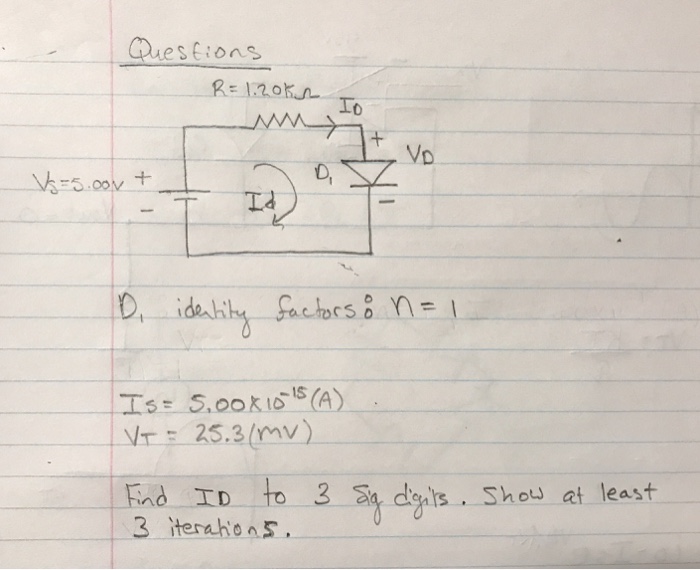 Questions
R = 1.20KΩ
ID
+
VD
Vs=5.00V +
D1
-
Id
-
D1 identity factors: n = 1
Is= 5.00x10^-15 (A)
VT = 25.3(mV)
Find ID to 3 sig digits. Show at least
3 iterations.